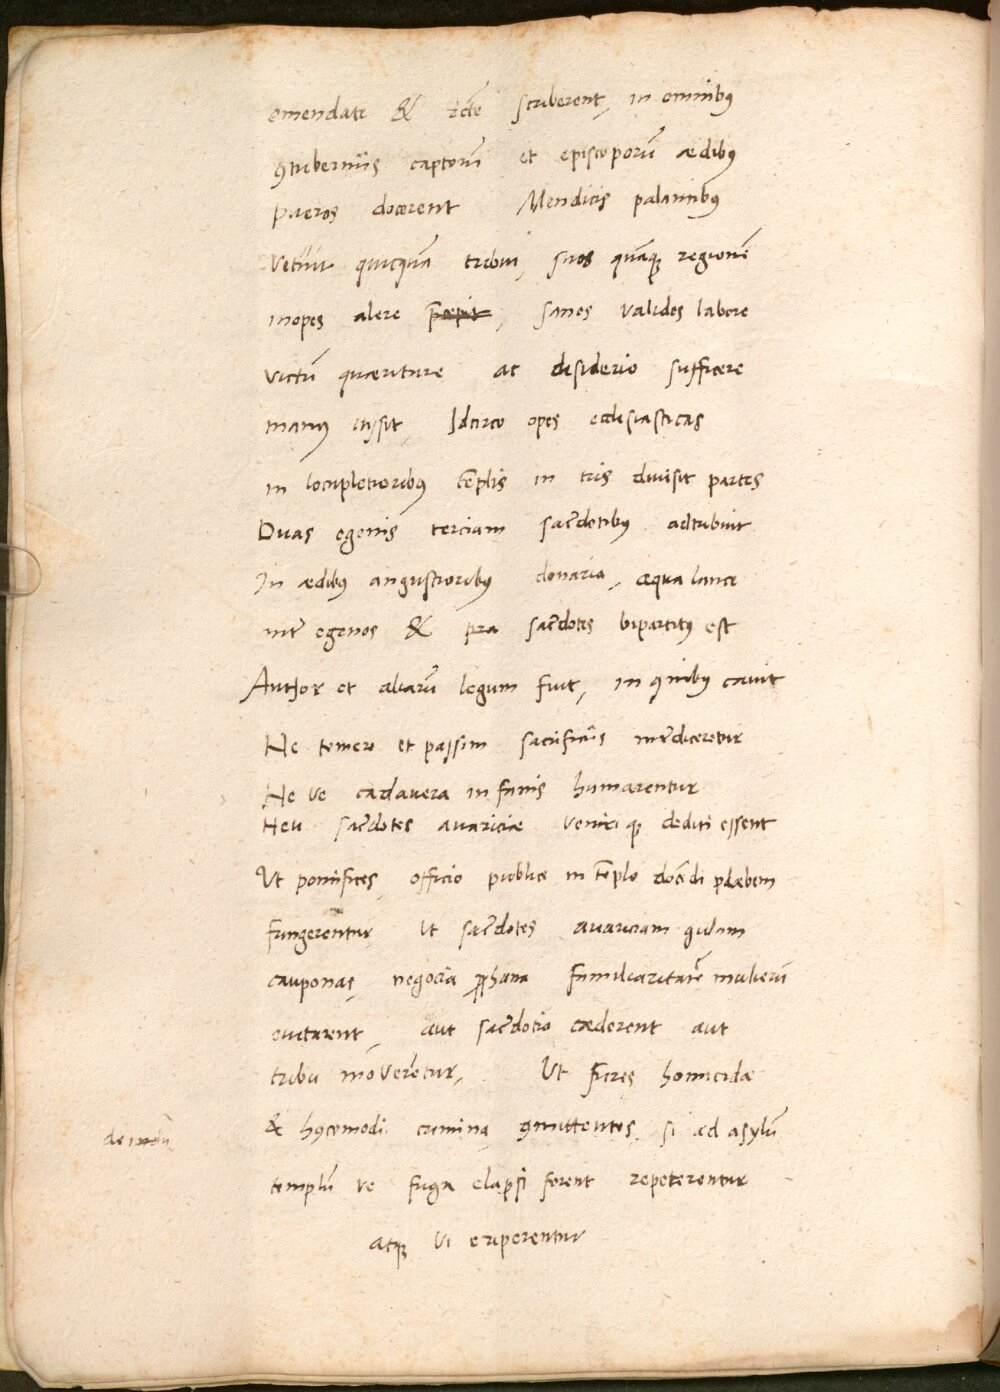 emendate & rcte scriberent, in omnibꝰ
ꝯtuberniis captorū et episcoporū ædibꝰ
pueros docerent Mendicis palantibꝰ
vetuit quicquā tribui, suos quāqꝫ regionē
inopes alere p̄cepit, sanos validos labore
victū quæritare ac desiderio sufficere
manꝰ iussit, Idcirco opes ecclesiasticas
in locupletioribꝰ tēplis in tris divisit partes
Duas egenis terciam sac̄dotibꝰ adtribuit
In ædibꝰ angustioribꝰ donaria, æqua lance
int̄ egenos & sac̄dotes bipartitꝰ est
Author et aliarū legum fuit, in quibꝰ cavit
Ne temere et passim sacrificiis int̄diceretur
Ne ve cadavera in fanis humarentur
Neu sac̄dotes avariciæ ventri qꝫ dediti essent
Ut pontifices, officio publice in tēplo docēdi plæbem
fungerentur Ut sac̄dotes avariciam gulam
cauponas, negocia ꝓphana familiaritatē mulierū
evitarent, aut sac̄dotio cæderent aut
tribu moverētur, Ut fures homicidæ
& hꝰcemodi crimina ꝯmittentes, si ad asylū
templū ve fuga elapsi forent repeterentur
atqꝫ vi eriperentur